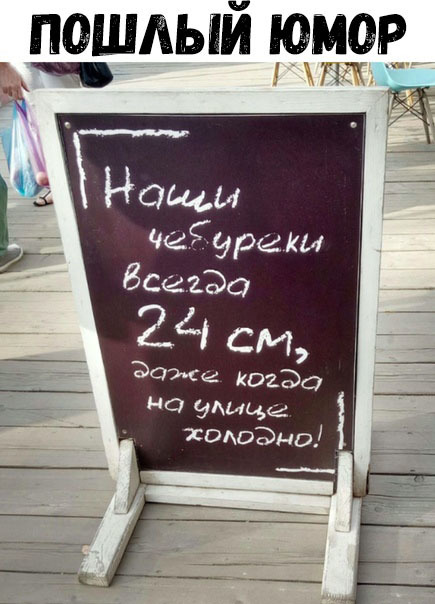 ПОШЛЫЙ ЮМОР
Наши
чебуреки
всегда
24 см,
даже когда
на улице
холодно!